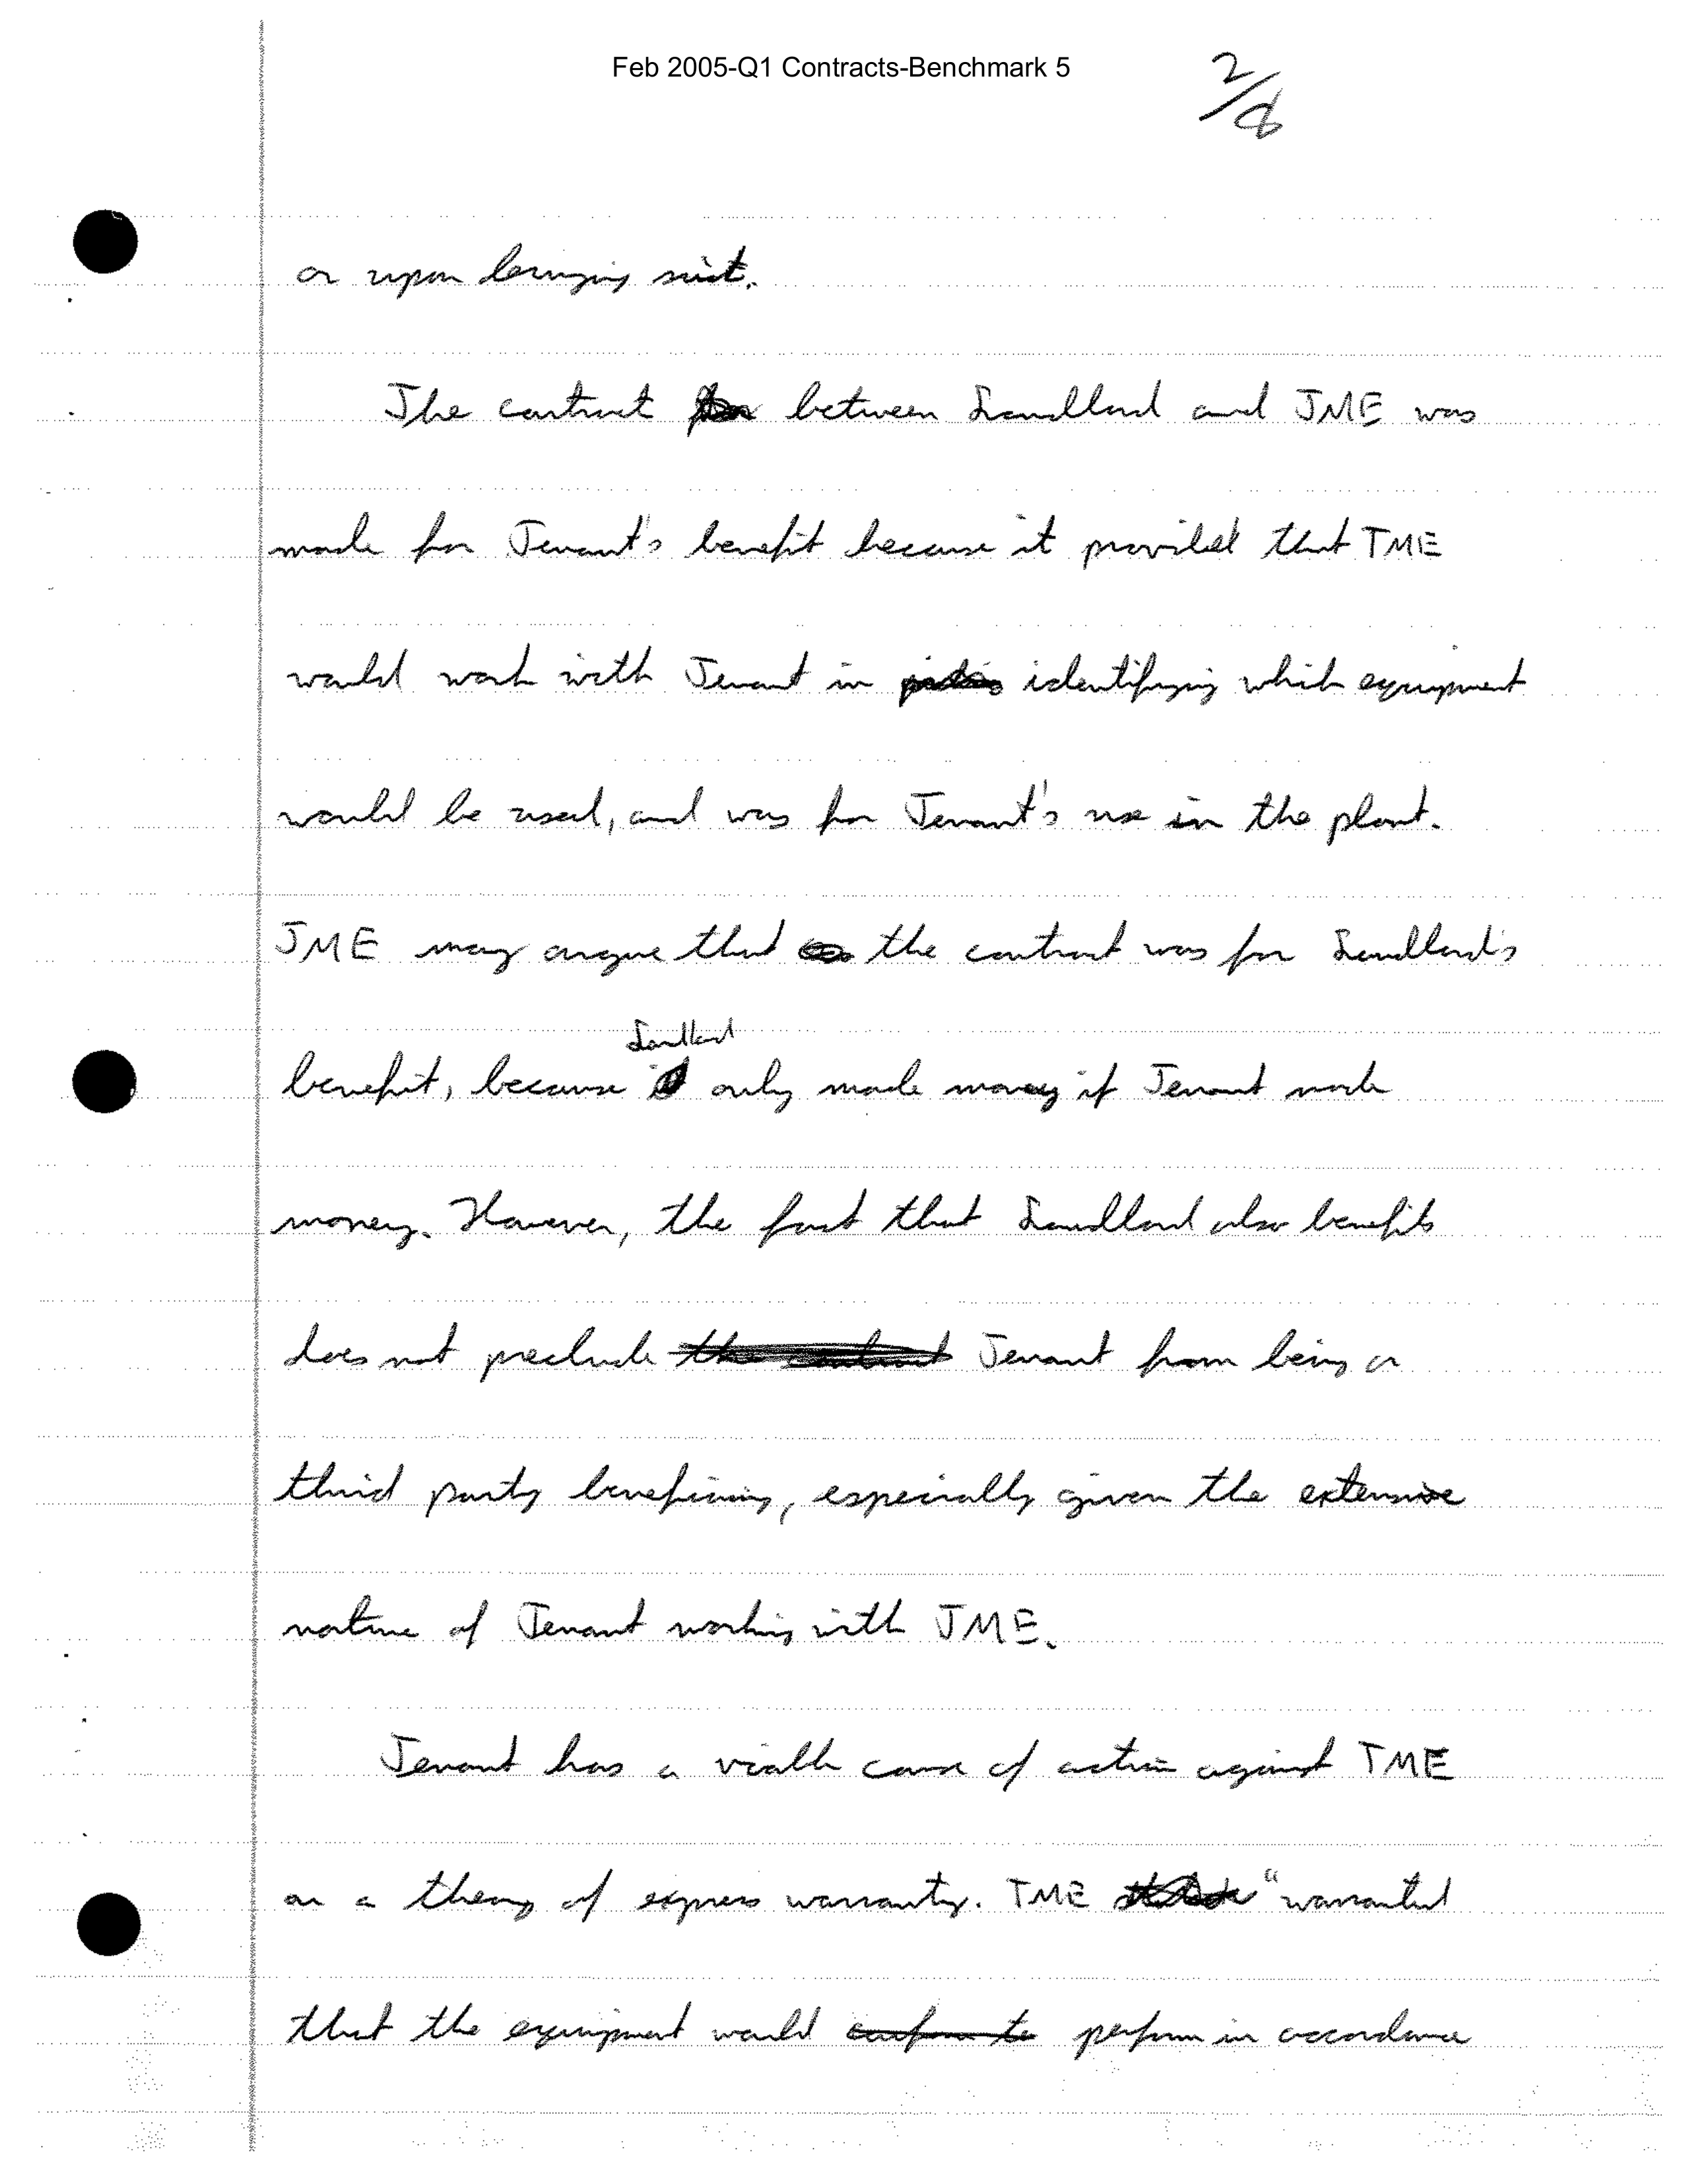 Feb 2005-Q1 Contracts-Benchmark 5
2/8
or upon bringing suit.
The contract between Landlord and TME was
made for Tenant's benefit because it provided that TME
would work with Tenant in identifying which equipment
would be used, and was for Tenant's use in the plant.
TME may argue that the contract was for Landlord's
benefit, because Landlord only made money if Tenant made
money. However, the fact that Landlord also benefits
does not preclude Tenant from being a
third party beneficiary, especially given the extensive
nature of Tenant working with TME.
Tenant has a viable cause of action against TME
on a theory of express warranty. TME "warranted
that the equipment would perform in accordance